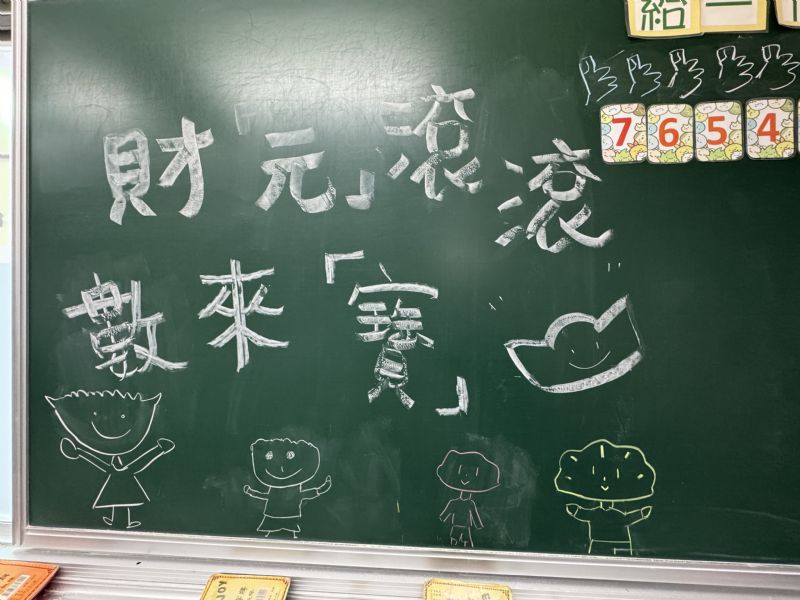 給一
7 6 5 4
財「元」滾滾
數來「寶」
JOY